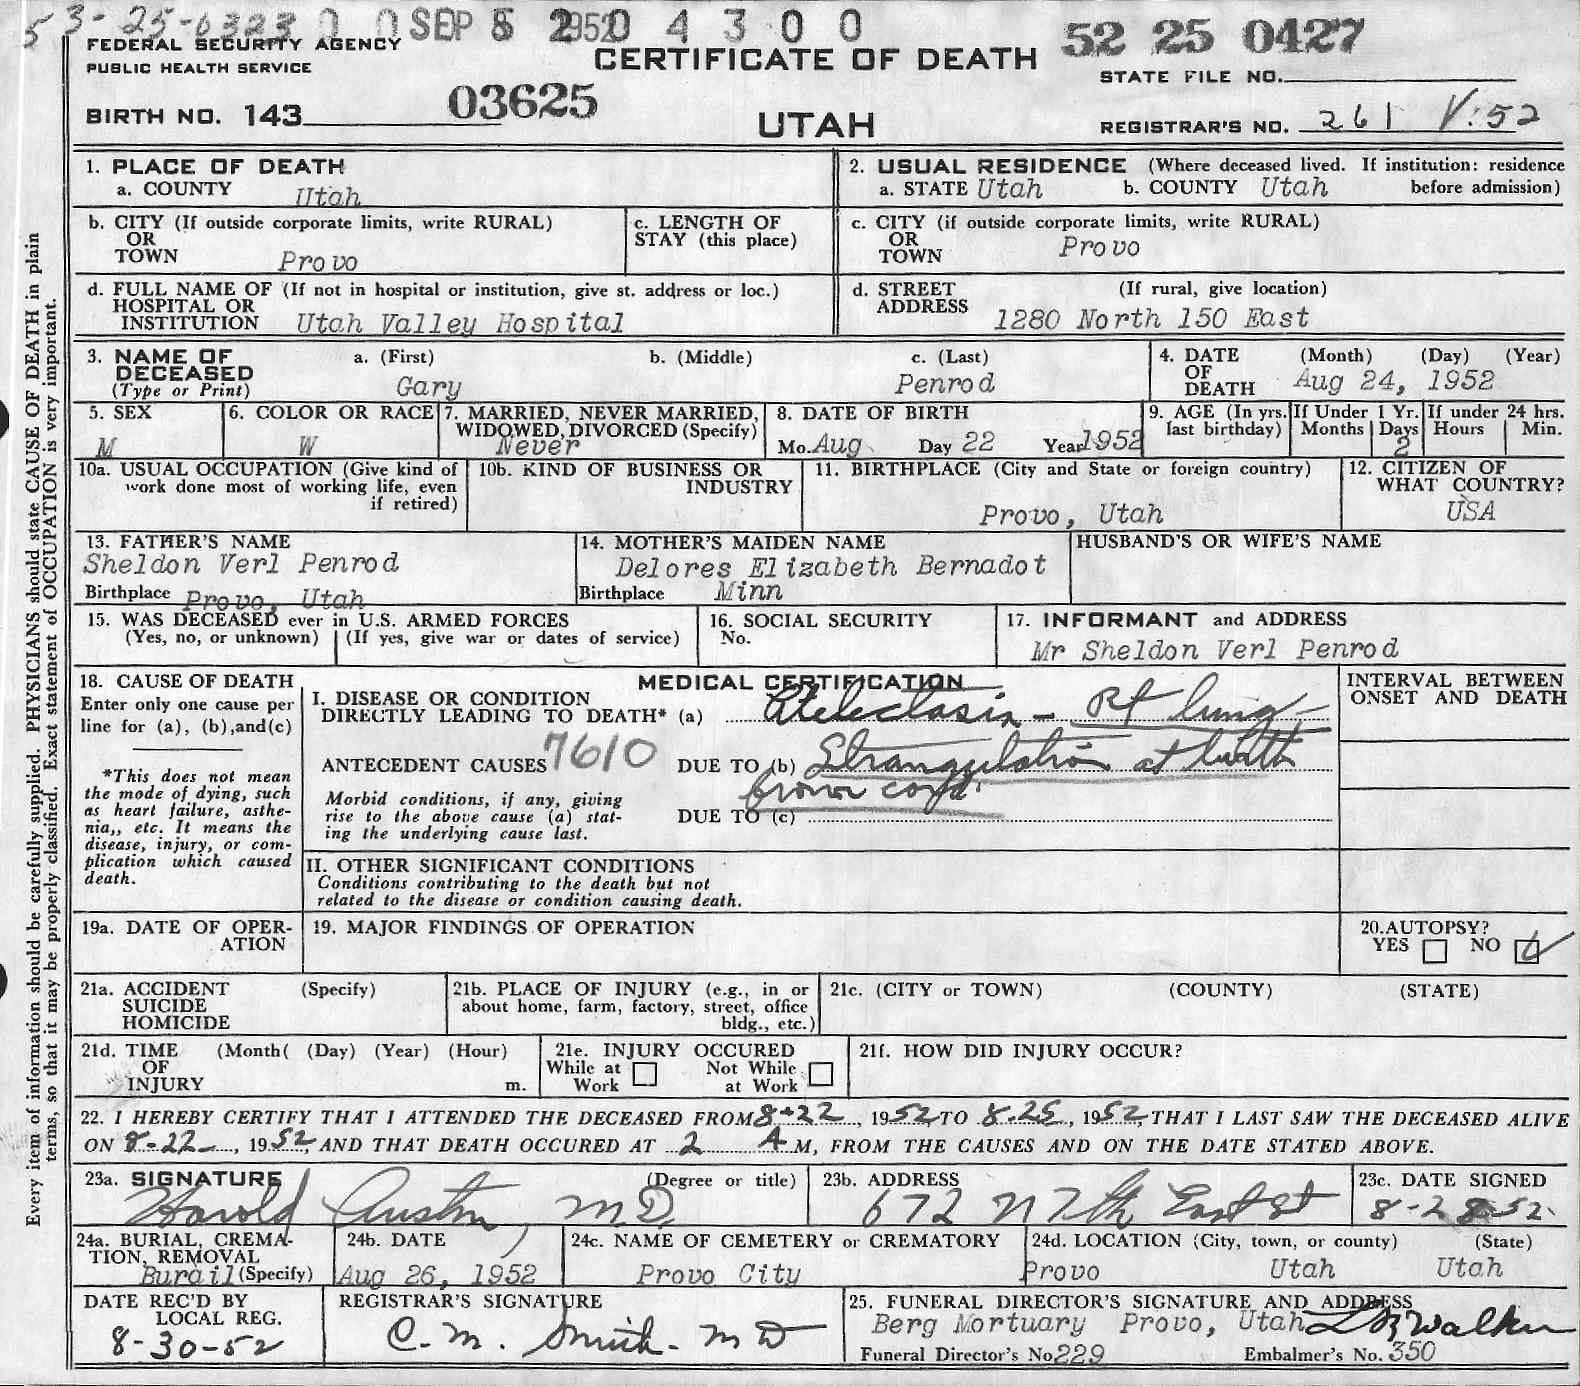 53-25-0323 0 0 SEP 5 1952 0 4 3 0 0
52 25 0427
FEDERAL SECURITY AGENCY
PUBLIC HEALTH SERVICE
CERTIFICATE OF DEATH
STATE FILE NO.
BIRTH NO. 143 03625
UTAH
REGISTRAR'S NO. 261 V:52
1. PLACE OF DEATH
a. COUNTY Utah
2. USUAL RESIDENCE (Where deceased lived. If institution: residence before admission)
a. STATE Utah b. COUNTY Utah
b. CITY (If outside corporate limits, write RURAL)
OR
TOWN Provo
c. LENGTH OF
STAY (this place)
c. CITY (if outside corporate limits, write RURAL)
OR
TOWN Provo
d. FULL NAME OF (If not in hospital or institution, give st. address or loc.)
HOSPITAL OR
INSTITUTION Utah Valley Hospital
d. STREET (If rural, give location)
ADDRESS 1280 North 150 East
3. NAME OF DECEASED
(Type or Print)
a. (First) b. (Middle) c. (Last)
Gary Penrod
4. DATE OF DEATH (Month) (Day) (Year)
Aug 24, 1952
5. SEX
M
6. COLOR OR RACE
W
7. MARRIED, NEVER MARRIED,
WIDOWED, DIVORCED (Specify)
Never
8. DATE OF BIRTH
Mo. Aug Day 22 Year 1952
9. AGE (In yrs. last birthday)
If Under 1 Yr.
Months Days
2
If under 24 hrs.
Hours Min.
10a. USUAL OCCUPATION (Give kind of
work done most of working life, even
if retired)
10b. KIND OF BUSINESS OR
INDUSTRY
11. BIRTHPLACE (City and State or foreign country)
Provo, Utah
12. CITIZEN OF
WHAT COUNTRY?
USA
13. FATHER'S NAME
Sheldon Verl Penrod
Birthplace Provo, Utah
14. MOTHER'S MAIDEN NAME
Delores Elizabeth Bernadot
Birthplace Minn
HUSBAND'S OR WIFE'S NAME
15. WAS DECEASED ever in U.S. ARMED FORCES
(Yes, no, or unknown) (If yes, give war or dates of service)
16. SOCIAL SECURITY
No.
17. INFORMANT and ADDRESS
Mr Sheldon Verl Penrod
18. CAUSE OF DEATH
Enter only one cause per
line for (a), (b),and(c)
*This does not mean
the mode of dying, such
as heart failure, asthe-
nia,, etc. It means the
disease, injury, or com-
plication which caused
death.
MEDICAL CERTIFICATION
I. DISEASE OR CONDITION
DIRECTLY LEADING TO DEATH* (a) Atelectasis - Rt lung
ANTECEDENT CAUSES 7610 DUE TO (b) Strangulation at birth
from cord.
Morbid conditions, if any, giving
rise to the above cause (a) stat-
ing the underlying cause last.
DUE TO (c)
INTERVAL BETWEEN
ONSET AND DEATH
II. OTHER SIGNIFICANT CONDITIONS
Conditions contributing to the death but not
related to the disease or condition causing death.
19a. DATE OF OPER-
ATION
19. MAJOR FINDINGS OF OPERATION
20.AUTOPSY?
YES NO
21a. ACCIDENT (Specify)
SUICIDE
HOMICIDE
21b. PLACE OF INJURY (e.g., in or
about home, farm, factory, street, office
bldg., etc.)
21c. (CITY or TOWN) (COUNTY) (STATE)
21d. TIME (Month( (Day) (Year) (Hour)
OF
INJURY m.
21e. INJURY OCCURED
While at Work Not While at Work
21f. HOW DID INJURY OCCUR?
22. I HEREBY CERTIFY THAT I ATTENDED THE DECEASED FROM 8-22, 1952 TO 8.25, 1952, THAT I LAST SAW THE DECEASED ALIVE
ON 8-22, 1952, AND THAT DEATH OCCURED AT 2 A M, FROM THE CAUSES AND ON THE DATE STATED ABOVE.
23a. SIGNATURE (Degree or title)
Harold Austin, M.D.
23b. ADDRESS
672 N 7th East St
23c. DATE SIGNED
8-28-52.
24a. BURIAL, CREMA-
TION, REMOVAL
Burail (Specify)
24b. DATE
Aug 26, 1952
24c. NAME OF CEMETERY or CREMATORY
Provo City
24d. LOCATION (City, town, or county) (State)
Provo Utah Utah
DATE REC'D BY
LOCAL REG.
8-30-52
REGISTRAR'S SIGNATURE
C. M. Smith - M D
25. FUNERAL DIRECTOR'S SIGNATURE AND ADDRESS
Berg Mortuary Provo, Utah Walker
Funeral Director's No 229 Embalmer's No. 350
Every item of information should be carefully supplied. PHYSICIANS should state CAUSE OF DEATH in plain
terms, so that it may be properly classified. Exact statement of OCCUPATION is very important.